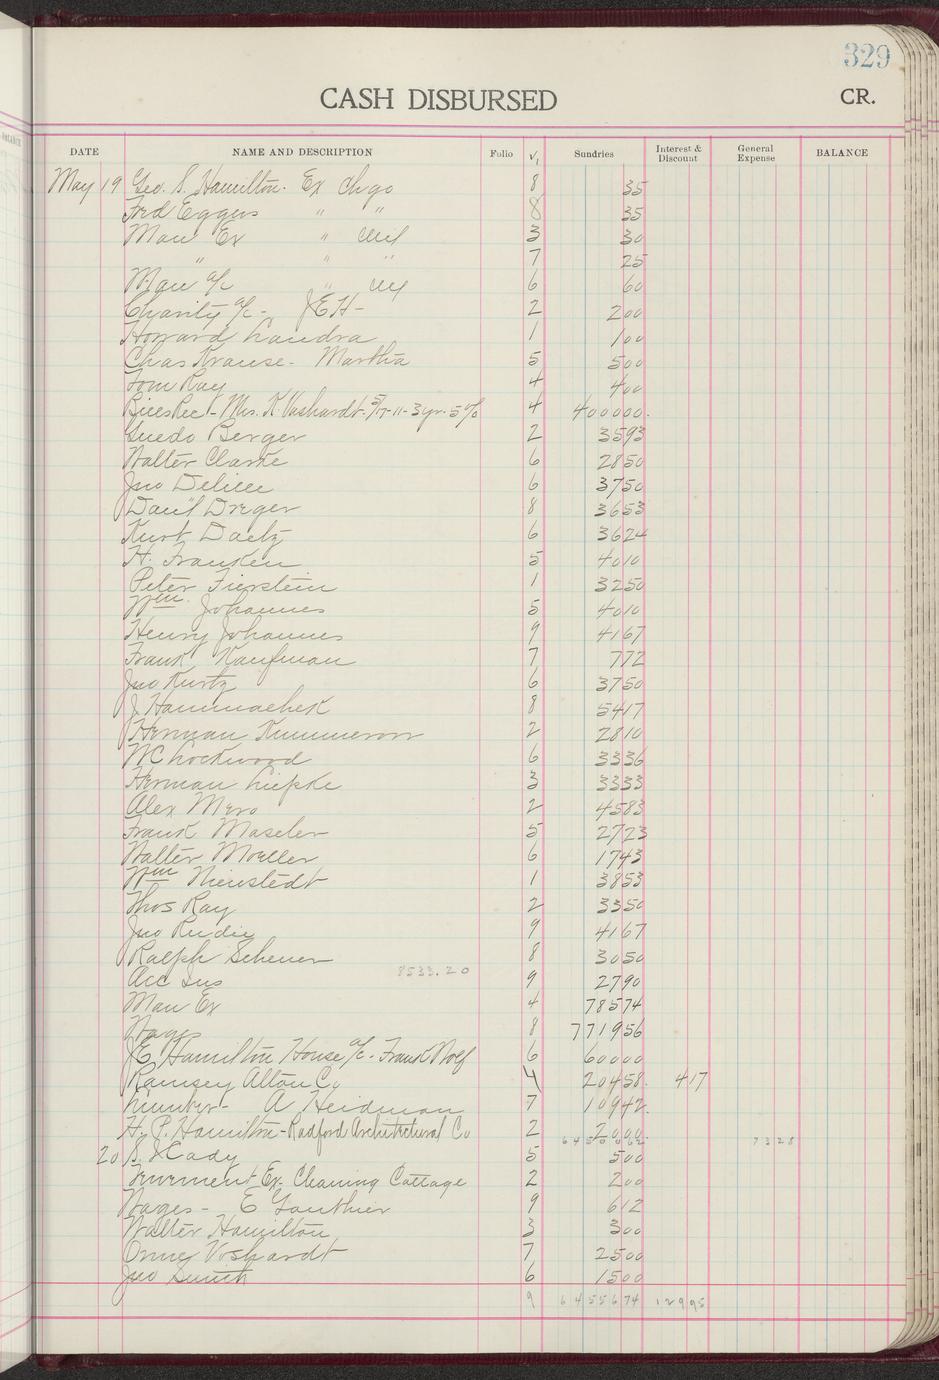 329
CASH DISBURSED CR.
DATE NAME AND DESCRIPTION Folio V, Sundries Interest & Discount General Expense BALANCE
May 19 Geo. S. Hamilton. Ex Chgo 8 35
Fred Eggers " " 8 35
Man Ex " Mil 3 30
" " " 7 25
Man a/c " Mil 6 60
Charity a/c - JEH - 2 200
Howard Landra 1 100
Chas Krause - Martha 5 500
Tom Ray 4 400
Bills Rec - Mrs. K. Voshardt - 5/17-11-3yr-5% 4 400000.
Guedo Berger 2 3593
Walter Clarke 6 2850
Jno 6 3750
Dan'l Dreger 8 3653
Kurt Daetz 6 3624
H. Franken 5 4010
Peter Fierstein 1 3250
Wm Johannes 5 4010
Henry Johannes 9 4167
Frank Kaufman 7 772
Jno Kurtz 6 3750
J. Hammachek 8 5417
Herman 2 2810
WC Lockwood 6 3336
Herman Liepke 3 3333
Alex Mero 2 4583
Frank Maseler 5 2723
Walter Moeller 6 1743
Wm Nienstedt 1 3853
Thos Ray 2 3350
Jno Rudie 9 4167
Ralph Scheuer 8 3050
Acc Ins 8533.20 9 2790
Man Ex 4 78574
Wages 8 771956
J.E. Hamilton House a/c - Frank Wolf 6 60000
Ramsey Alton Co 4 20458. 417
Lumber - A Heidman 7 10942.
H. P. Hamilton - Radford Architectural Co 2 2000
6450062 7328
20 S. J Cady 5 500
Tenement Ex. Cleaning Cottage 2 200
Wages - E Gauthier 9 612
Walter Hamilton 3 300
Orme Voshardt 7 2500
Jno Smith 6 1500
9 6455674 12995